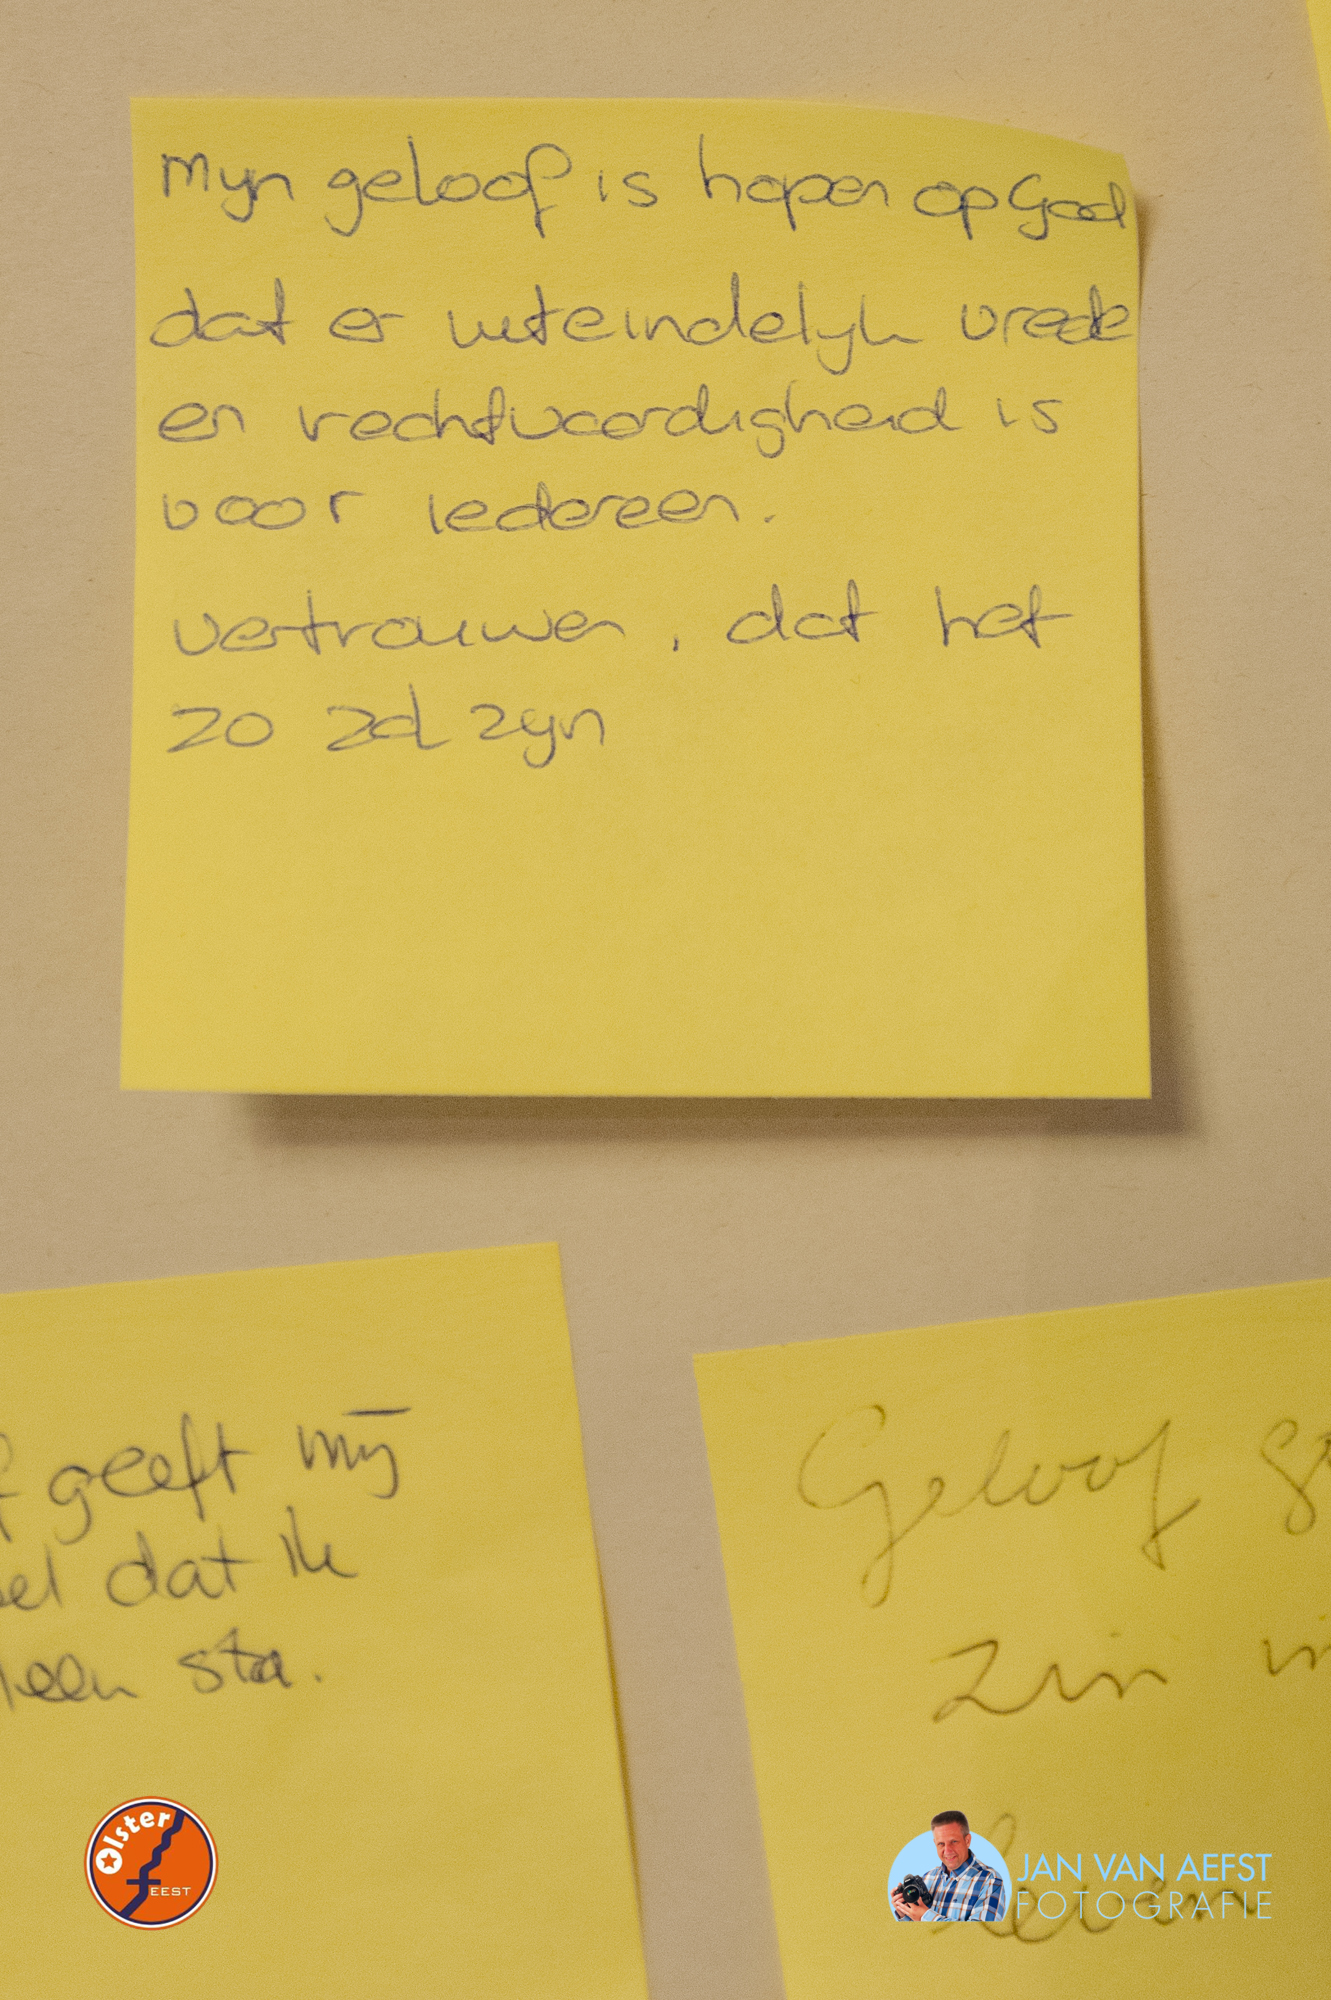 Mijn geloof is hopen op God
dat er uiteindelijk vrede
en rechtvaardigheid is
voor iedereen.
vertrouwen, dat het
zo zal zijn
geeft mij
dat ik
sta.
Geloof
zin in
leven
Olster
FEEST
JAN VAN AEFST
FOTOGRAFIE